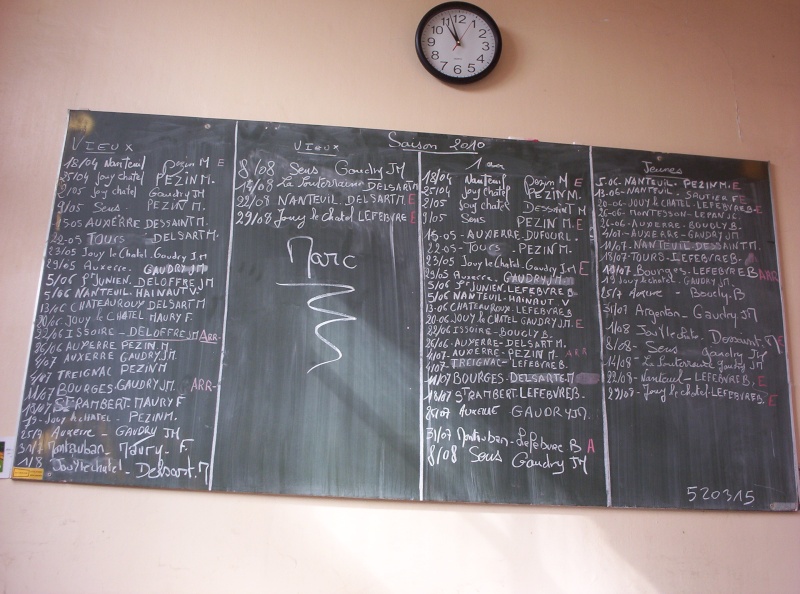 Saison 2010
VIEUX
18/04 Nanteuil Pezin M E
25/04 Jouy chatel PEZIN M.
2/05 Jouy chatel Gaudry JM
9/05 Sens. PEZIN M.
AUXERRE DESSAINT M.
22-05 TOURS DELSART M.
23/05 Jouy le Chatel. Gaudry J.M
29/05 Auxerre. GAUDRY JM
5/06 St JUNIEN. DELOFFRE JM
5/06 NANTEUIL-HAINAUT V
13/06 CHATEAUROUX DELSART M
20/06 Jouy le CHATEL MAURY F.
22/06 ISSOIRE - DELOFFRE JM ARR-
26/06 AUXERRE PEZIN M.
4/07 AUXERRE GAUDRY JM
4/07 TREIGNAC PEZIN M
11/07 BOURGES. GAUDRY JM. ARR-
18/07 St RAMBERT. MAURY F
19- Jouy le CHATEL - PEZIN M.
25/7 Auxerre - GAUDRY JM
31/7 Montauban - Maury - F.
1/8 Jouy le chatel - Dessart. M
VIEUX
8/08 Sens Gaudry JM
14/08 La Souterraine DELSART M
22/08 NANTEUIL DELSART M. E
29/08 Jouy le chatel LEFEBVRE E
Marc
1 an
18/04 Nanteuil Pezin M E
25/04 Jouy chatel PEZIN M.
2/05 Jouy chatel DESSAINT M
9/05 Sens PEZIN M. E
15-05 - AUXERRE DUFOUR L.
22-05- TOURS - PEZIN M.
23/05 Jouy le Chatel. Gaudry JM E
29/05 Auxerre GAUDRY JM
5/06 St JUNIEN. LEFEBVRE B
5/06 NANTEUIL-HAINAUT. V
13-06 CHATEAUROUX. LEFEBVRE B.
20-06. JOUY le CHATEL GAUDRY JM. E
22/06 ISSOIRE - BOUCLY B.
26-06 AUXERRE-DELSART M.
4/07- AUXERRE - PEZIN M. ARR
4/07- TREIGNAC - LEFEBVRE B.
11/07 BOURGES - DELSART M
18/07 St RAMBERT. LEFEBVRE B.
25/07 AUXERRE GAUDRY JM.
31/07 Montauban - Lefebvre B A
8/08 Sens Gaudry JM
Jeunes
5-06- NANTEUIL - PEZIN M. E
13-06- NANTEUIL. SAUTIER F E
20-06-JOUY le CHATEL LEFEBVRE B E
26-06- MONTESSON-
26-06- AUXERRE-BOUCLY B.
4/07- AUXERRE - GAUDRY JM
11/07- NANTEUIL DESSAINT M.
18/07- TOURS - LEFEBVRE B.
Bourges - LEFEBVRE B ARR
19 Jouy le chatel GAUDRY JM.
25/7 Auxerre - Boucly. B
31/07 Argenton - Gaudry JM
1/08 Jouy le chatel - Dessaint. M E
8/08 - Sens Gaudry JM
14/08 - La Souterraine Gaudry JM
22/08 - Nanteuil - LEFEBVRE B, E
29/08 - Jouy le chatel - LEFEBVRE B. E
520315
12
1
2
3
4
5
6
7
8
9
10
11